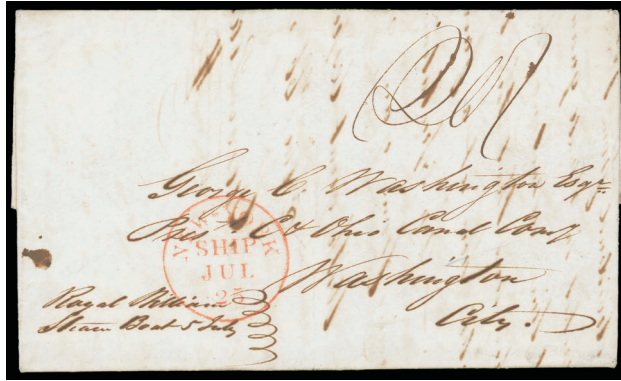 George C. Washington Esqre
Prest. C & Ohio Canal Comp
Washington
City.
NEW-YORK
SHIP
JUL
25
Royal William
Steam Boat 5 July